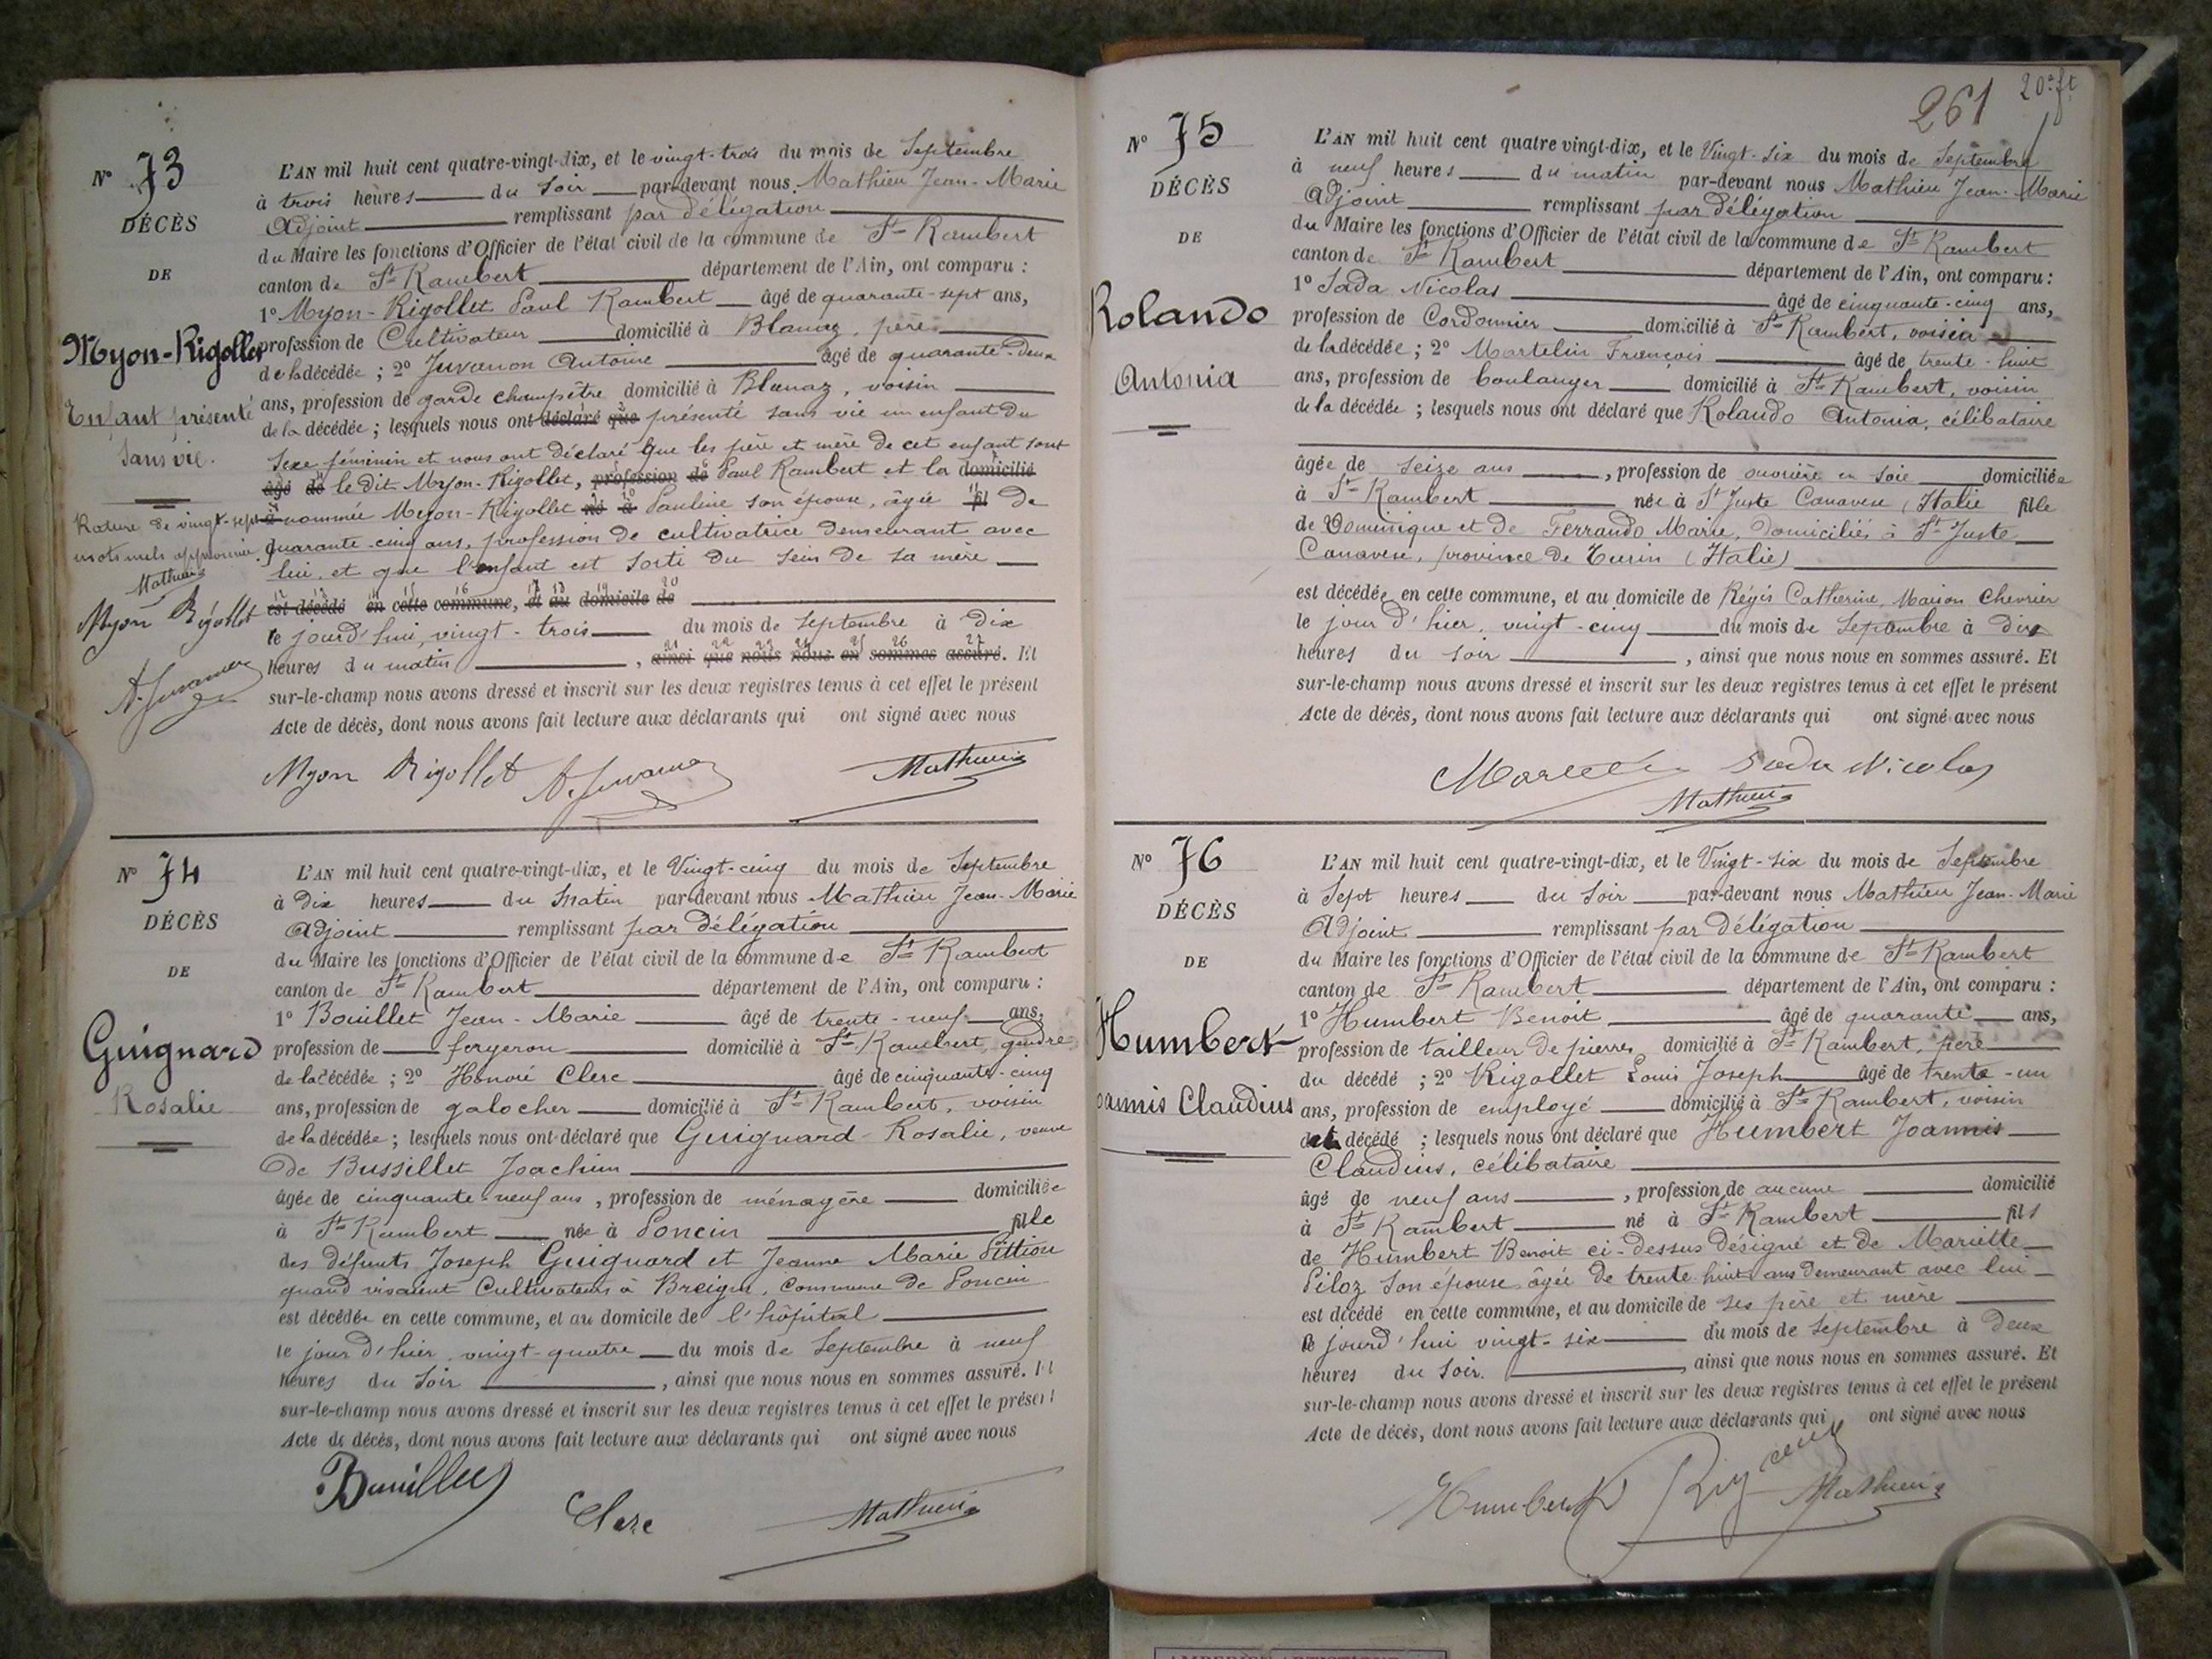 Nº 73
DÉCÈS
DE
Myon-Rigollet
Enfant présenté
sans vie.
Rature de vingt-sept
mots nuls approuvée.
Mathieu
Myon Rigollet
A. Juvanon
L'AN mil huit cent quatre-vingt-dix, et le vingt-trois du mois de Septembre
à trois heures du soir par-devant nous Mathieu Jean-Marie
Adjoint remplissant par délégation
du Maire les fonctions d'Officier de l'état civil de la commune de St Rambert
canton de St Rambert département de l'Ain, ont comparu :
1º Myon-Rigollet Paul Rambert âgé de quarante-sept ans,
profession de Cultivateur domicilié à Blanaz, père
de la décédée ; 2º Juvanon Antoine âgé de quarante-deux
ans, profession de garde champêtre domicilié à Blanaz, voisin
de la décédée ; lesquels nous ont déclaré que présenté sans vie un enfant du
sexe féminin et nous ont déclaré que les père et mère de cet enfant sont
âgé de le dit Myon-Rigollet, profession de Paul Rambert et la domicilié
à nommée Myon-Rigollet né à Pauline son épouse, âgée fil de
quarante-cinq ans, profession de cultivatrice demeurant avec
lui, et que l'enfant est sorti du sein de sa mère
est décédé en cette commune, et au domicile de
le jourd'hui, vingt-trois du mois de septembre à dix
heures du matin , ainsi que nous nous en sommes assuré. Et
sur-le-champ nous avons dressé et inscrit sur les deux registres tenus à cet effet le présent
Acte de décès, dont nous avons fait lecture aux déclarants qui ont signé avec nous
Myon Rigollet A. Juvanon Mathieu
Nº 74
DÉCÈS
DE
Guignard
Rosalie
L'AN mil huit cent quatre-vingt-dix, et le Vingt-cinq du mois de Septembre
à dix heures du matin par-devant nous Mathieu Jean-Marie
Adjoint remplissant par délégation
du Maire les fonctions d'Officier de l'état civil de la commune de St Rambert
canton de St Rambert département de l'Ain, ont comparu :
1º Bouillet Jean-Marie âgé de trente-neuf ans,
profession de forgeron domicilié à St Rambert, gendre
de la décédée ; 2º Honoré Clerc âgé de cinquante-cinq
ans, profession de galocher domicilié à St Rambert, voisin
de la décédée ; lesquels nous ont déclaré que Guignard Rosalie, veuve
de Bussillet Joachim
âgée de cinquante-neuf ans, profession de ménagère domiciliée
à St Rambert née à Poncin fille
des défunts Joseph Guignard et Jeanne Marie Pittion
quand vivaient Cultivateurs à Breigne, Commune de Poncin
est décédée en cette commune, et au domicile de l'hôpital
le jour d'hier, vingt-quatre du mois de Septembre à neuf
heures du soir , ainsi que nous nous en sommes assuré. Et
sur-le-champ nous avons dressé et inscrit sur les deux registres tenus à cet effet le présent
Acte de décès, dont nous avons fait lecture aux déclarants qui ont signé avec nous
Bouillet Clerc Mathieu
261 20e ft
Nº 75
DÉCÈS
DE
Rolando
Antonia
L'AN mil huit cent quatre vingt-dix, et le Vingt-six du mois de Septembre
à neuf heures du matin par-devant nous Mathieu Jean-Marie
Adjoint remplissant par délégation
du Maire les fonctions d'Officier de l'état civil de la commune de St Rambert
canton de St Rambert département de l'Ain, ont comparu :
1º Sada Nicolas âgé de cinquante-cinq ans,
profession de Cordonnier domicilié à St Rambert, voisin
de la décédée ; 2º Martelin François âgé de trente-huit
ans, profession de boulanger domicilié à St Rambert, voisin
de la décédée ; lesquels nous ont déclaré que Rolando Antonia, célibataire
âgée de seize ans , profession de ouvrière en soie domiciliée
à St Rambert née à St Juste Canavese (Italie fille
de Dominique et de Ferrando Marie, domiciliés à St Juste
Canavese, province de Turin (Italie)
est décédée en cette commune, et au domicile de Régis Catherine, Maison Chevrier
le jour d'hier, vingt-cinq du mois de Septembre à dix
heures du soir , ainsi que nous nous en sommes assuré. Et
sur-le-champ nous avons dressé et inscrit sur les deux registres tenus à cet effet le présent
Acte de décès, dont nous avons fait lecture aux déclarants qui ont signé avec nous
Sada Nicolas
Mathieu
Nº 76
DÉCÈS
DE
Humbert
Joannis Claudius
L'AN mil huit cent quatre-vingt-dix, et le Vingt-six du mois de Septembre
à Sept heures du soir par-devant nous Mathieu Jean-Marie
Adjoint remplissant par délégation
du Maire les fonctions d'Officier de l'état civil de la commune de St Rambert
canton de St Rambert département de l'Ain, ont comparu :
1º Humbert Benoit âgé de quarante ans,
profession de tailleur de pierres domicilié à St Rambert, père
du décédé ; 2º Rigollet Louis Joseph âgé de trente-un
ans, profession de employé domicilié à St Rambert, voisin
du décédé ; lesquels nous ont déclaré que Humbert Joannis
Claudius, célibataire
âgé de neuf ans , profession de aucune domicilié
à St Rambert né à St Rambert fils
de Humbert Benoit ci-dessus désigné et de Mariette
Piloz son épouse âgée de trente-huit ans demeurant avec lui
est décédé en cette commune, et au domicile de ses père et mère
le jourd'hui vingt-six du mois de Septembre à deux
heures du soir. , ainsi que nous nous en sommes assuré. Et
sur-le-champ nous avons dressé et inscrit sur les deux registres tenus à cet effet le présent
Acte de décès, dont nous avons fait lecture aux déclarants qui ont signé avec nous
Humbert Mathieu